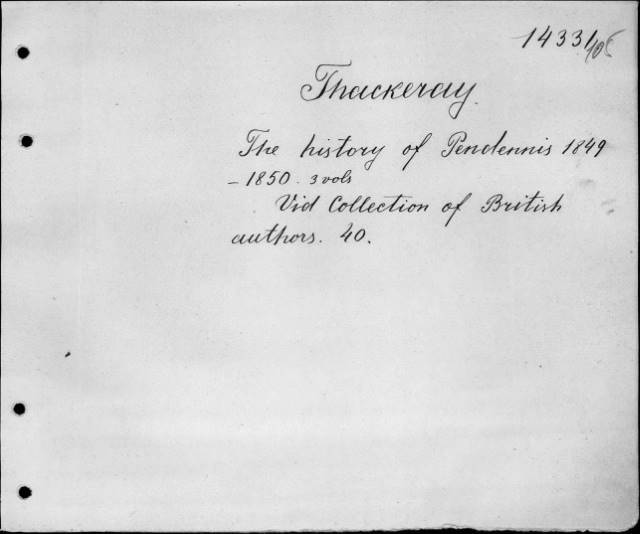 14331/405
Thackeray.
The history of Pendennis 1849
- 1850. 3 vols
Vid Collection of British
authors. 40.